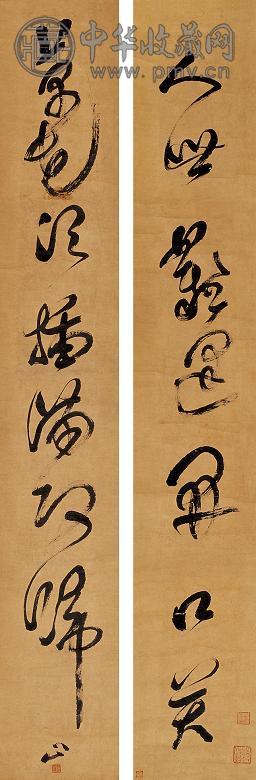 中华收藏网
人世難逢開口笑
菊花須插滿頭歸
山